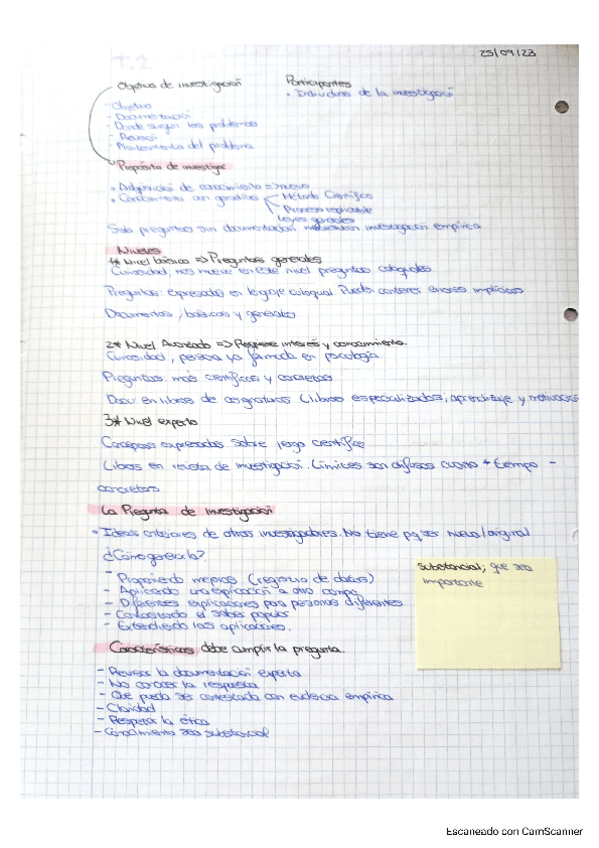 25/09/23
T.2
Objetivo de investigación
Participantes
• Estructuras de la investigación
- Objetivo
- Documentación
- Donde surgen los problemas
- Revisión
- Planteamiento del problema
Propósito de investigar
• Adquisición de conocimiento => nuevo
• Conocimiento con garantías
Método Científico
Proceso replicable
Leyes generales
Solo preguntas sin documentación necesitan investigación empírica
Niveles
1* Nivel básico => Preguntas generales
Curiosidad, nos mueve en este nivel preguntas coloquiales
Preguntas: expresadas en lenguaje coloquial. Pueden contener errores implícitos
Documentos, básicos y generales
2* Nivel Avanzado => Requiere interés y conocimiento.
Curiosidad, persona ya formada en psicología
Preguntas: más científicas y concretas
Docu en libros de asignaturas (libros especializados, aprendizaje y motivación
3* Nivel experto
Conceptos expresados sobre jerga científica
Libros en revista de investigación. Límites son difusos cuanto + tiempo -
concretos
La Pregunta de Investigación
• Ideas anteriores de otros investigadores. No tiene pq ser nueva/original
¿Cómo generarla?
- Proponiendo mejoras (registro de datos)
- Aplicando una explicación a otro campo
- Diferentes explicaciones para personas diferentes
- Contrastando el saber popular
- Extendiendo las aplicaciones.
Substancial; que sea
importante
Características debe cumplir la pregunta.
- Revisar la documentación experta
- No conocer la respuesta
- Que pueda ser contestada con evidencia empírica
- Claridad
- Respetar la ética
- Conocimiento sea substancial
Escaneado con CamScanner